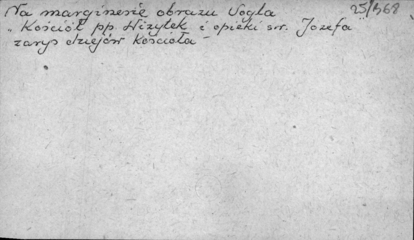 Na marginesie obrazu Vogla 25/968
„Kościół pp. Wizytek i opieki św. Józefa"
zarys dziejów kościoła -